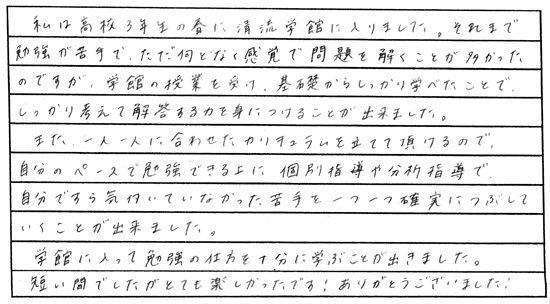 私は高校3年生の春に清流学館に入りました。それまで
勉強が苦手で、ただ何となく感覚で問題を解くことが多かった
のですが、学館の授業を受け、基礎からしっかり学べたことで、
しっかり考えて解答する力を身につけることが出来ました。
また、一人一人に合わせたカリキュラムを立てて頂けるので、
自分のペースで勉強できる上に、個別指導や分析指導で、
自分ですら気付いていなかった苦手を一つ一つ確実につぶして
いくことが出来ました。
学館に入って勉強の仕方を十分に学ぶことが出きました。
短い間でしたがとても楽しかったです!ありがとうございました!